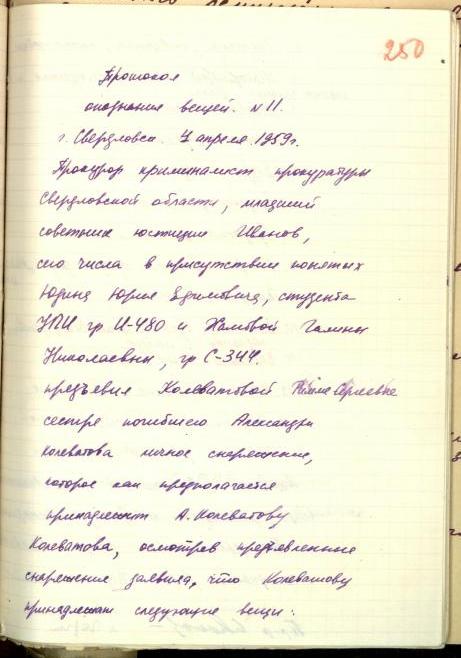 250
Протокол
опознания вещей. N 11.
г. Свердловск. 7 апреля 1959г.
Прокурор криминалист прокуратуры
Свердловской области, младший
советник юстиции Иванов,
сего числа в присутствии понятых
Юдина Юрия Ефимовича, студента
УПИ гр И-480 и Хамовой Галины
Николаевны, гр С-344.
предъявил Колеватовой Римме Сергеевне
сестре погибшего Александра
Колеватова личное снаряжение,
которое как предполагается
принадлежит А. Колеватову
Колеватова, осмотрев предъявленное
снаряжение заявила, что Колеватову
принадлежат следующие вещи: